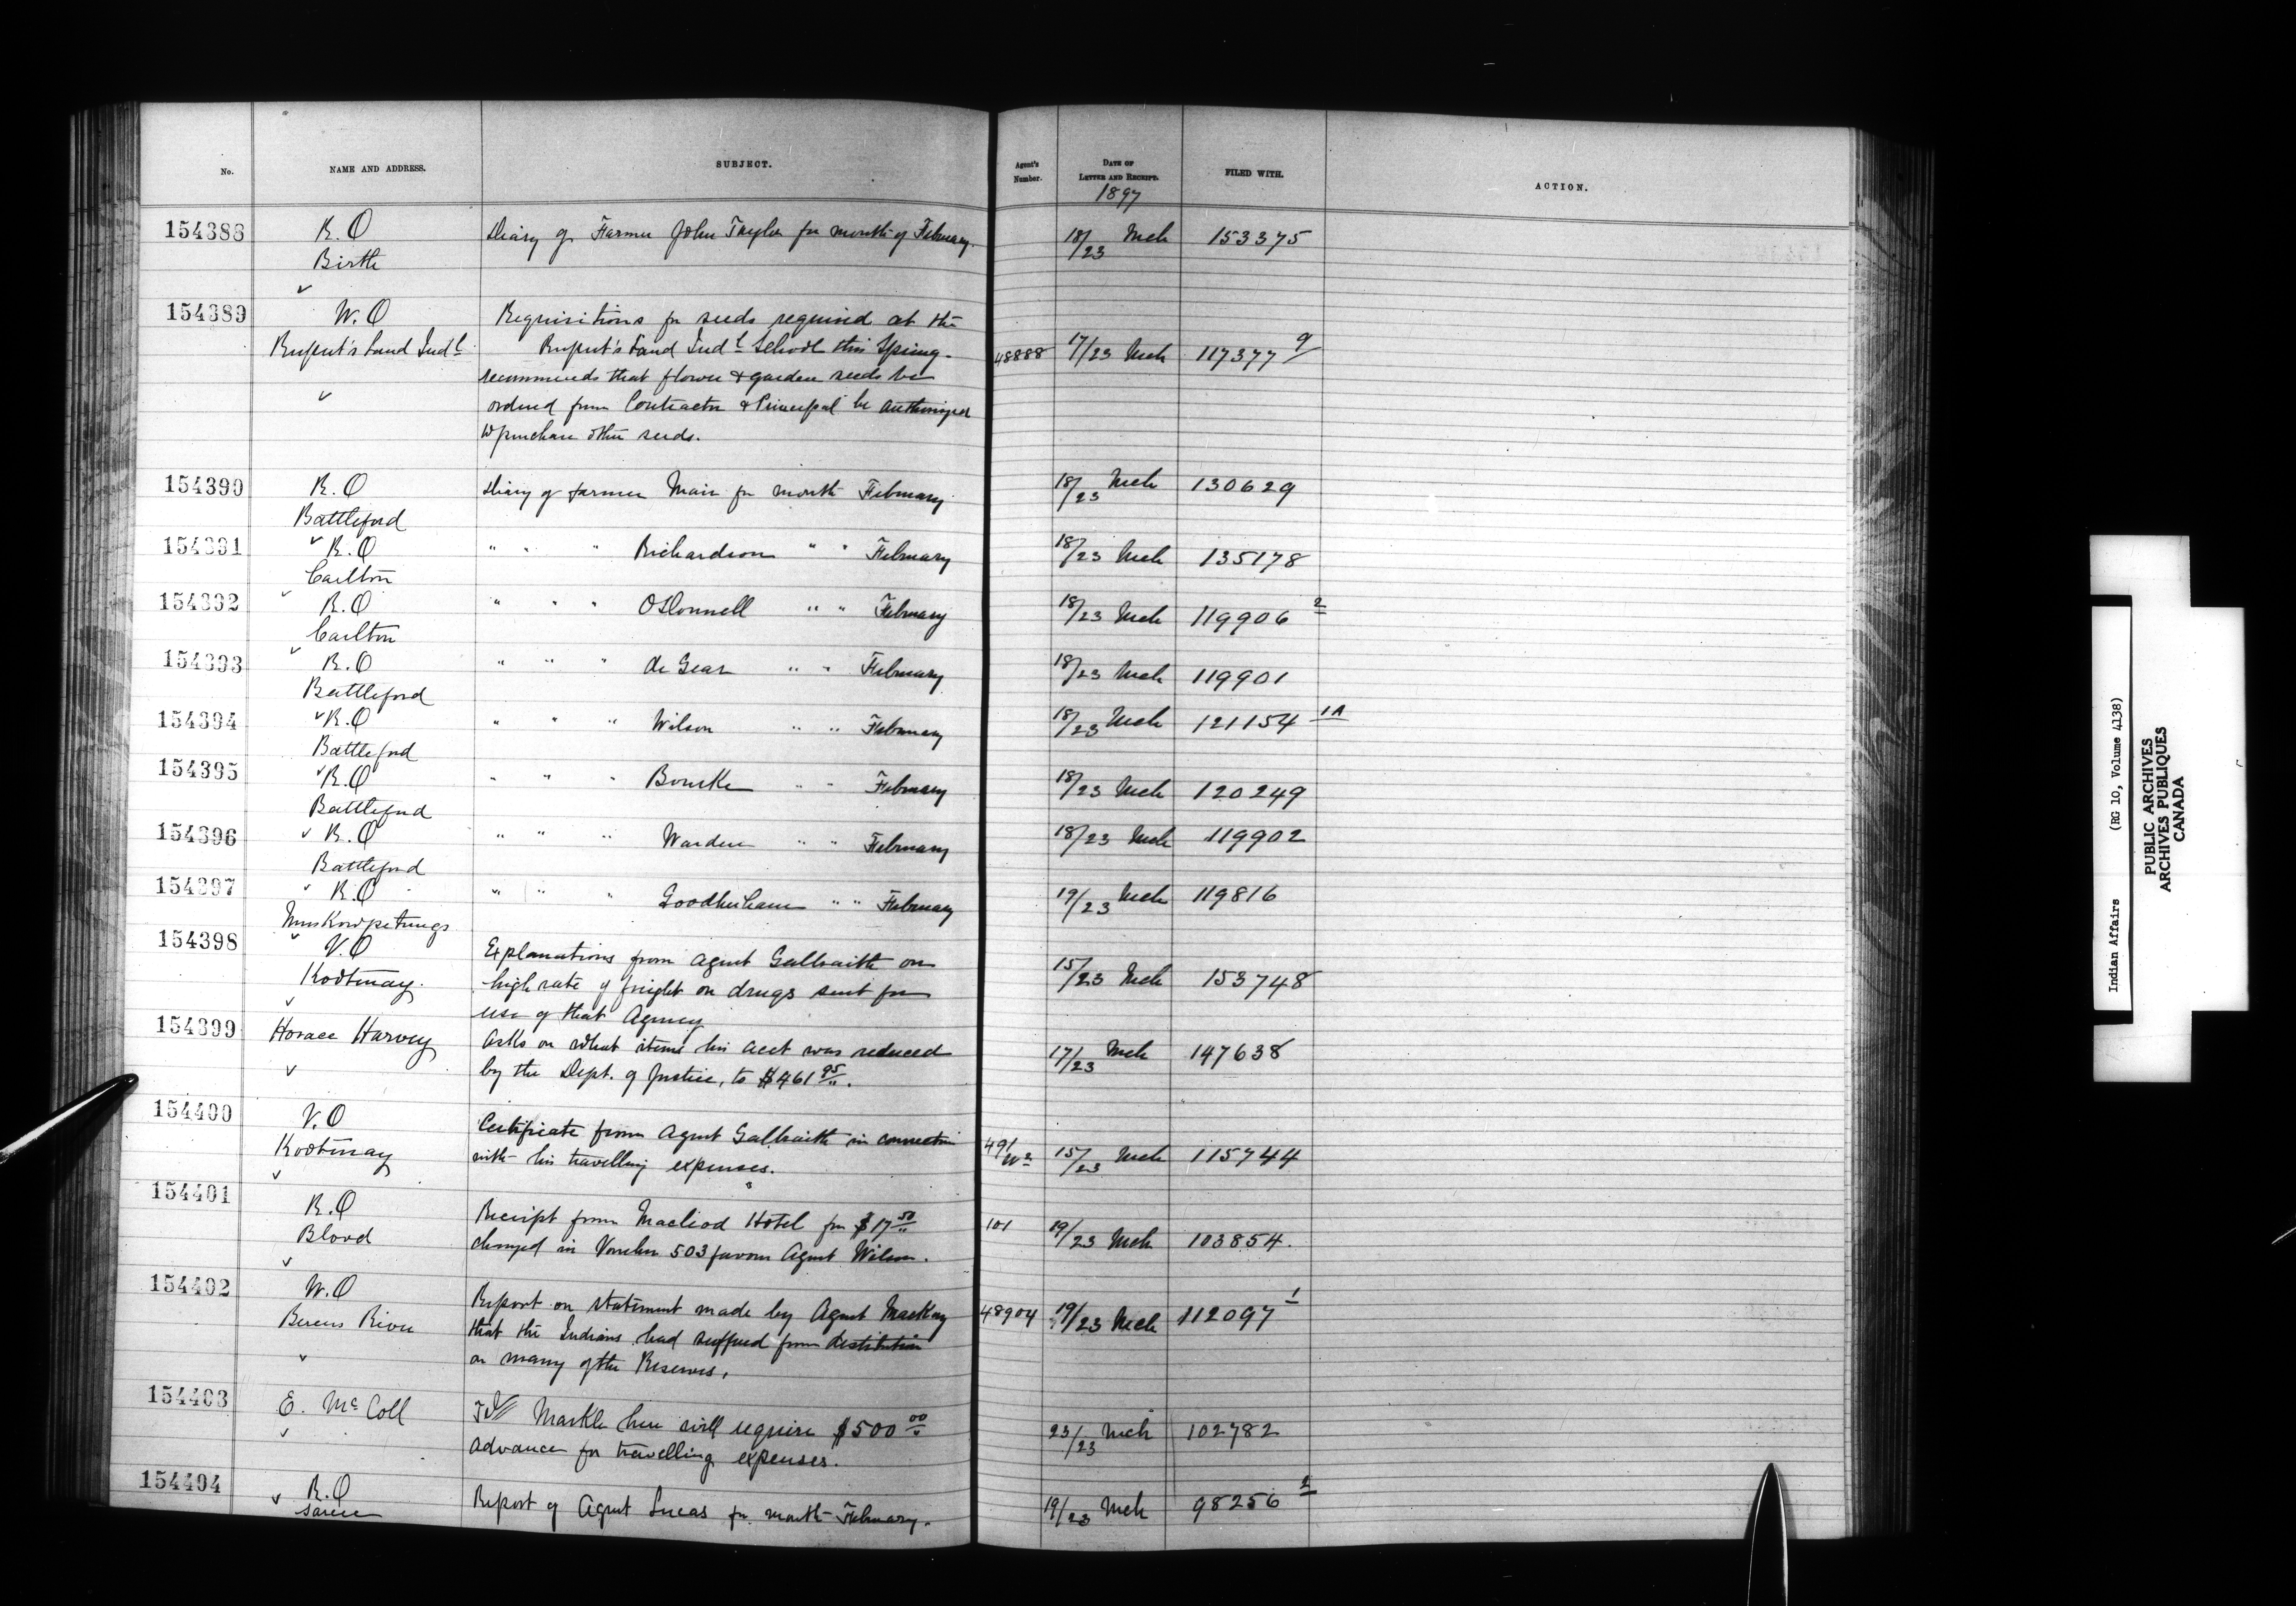 No. NAME AND ADDRESS. SUBJECT. Agent's Number. DATE OF LETTER AND RECEIPT. FILED WITH. ACTION.
1897
154388 R.O Diary of Farmer John Taylor for month of February. 18/23 Mch 153375
Birtle
154389 W.O Requisitions for seeds required at the
Rupert's Land Indl Rupert's Land Indl School this Spring. 48888 17/23 Mch 117377 9
recommends that flower & garden seeds be
ordered from Contractor & Principal be authorized
to purchase other seeds.
154390 R.O Diary of farmer Mair for month February 18/23 Mch 130629
Battleford
154391 R.O " " " Richardson " " February 18/23 Mch 135178
Carlton
154392 R.O " " " O'Donnell " " February 18/23 Mch 119906 2
Carlton
154393 R.O " " " de Gear " " February 18/23 Mch 119901
Battleford
154394 R.O " " " Wilson " " February 18/23 Mch 121154 1A
Battleford
154395 R.O " " " Bourke " " February 18/23 Mch 120249
Battleford
154396 R.O " " " Warden " " February 18/23 Mch 119902
Battleford
154397 R.O " " " " " February 19/23 Mch 119816
Muskowpetungs
154398 V.O Explanations from Agent Galbraith on
Kootenay. high rate of freight on drugs sent for 15/23 Mch 153748
use of that Agency
154399 Horace Harvey Asks on what items his acct was reduced 17/23 Mch 147638
by the Dept. of Justice, to $461 95.
154400 V.O Certificate from Agent Galbraith in connection
Kootenay with his travelling expenses. 49/ 15/23 Mch 115744
154401 R.O Receipt from Macleod Hotel for $17 50 101 19/23 Mch 103854.
Blood charged in Voucher 503 favour Agent Wilson.
154402 W.O Report on statement made by Agent MacKay 48904 19/23 Mch 112097 1
Berens River that the Indians had suffered from destitution
on many of the Reserves.
154403 E. McColl Markle here will require $500 00 23/23 Mch 102782
advance for travelling expenses.
154404 R.O Report of Agent Lucas for month February. 19/23 Mch 98256 2
Sarcee
Indian Affairs (RG 10, Volume 4138)
PUBLIC ARCHIVES
ARCHIVES PUBLIQUES
CANADA